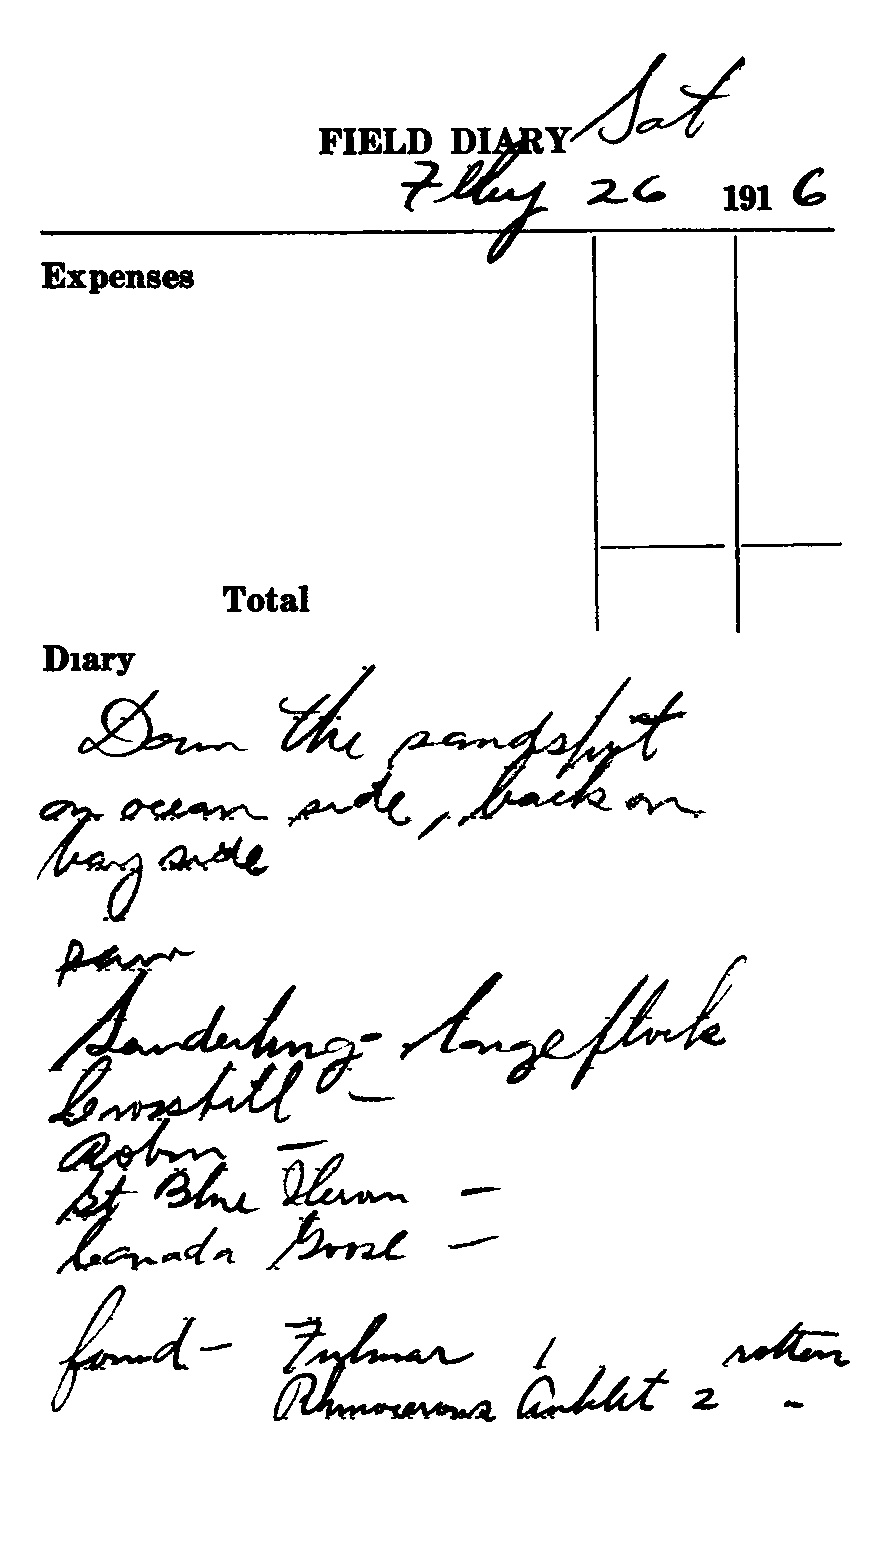 FIELD DIARY Sat
26 1916
Expenses
Total
Diary
Down the sandspit
on ocean side, back on
bay side
saw
Sanderling - large flock
Crossbill -
Robin -
Gt Blue Heron -
Canada Goose -
found - Fulmar 1 rotten
Rhinocerous Auklet 2 "